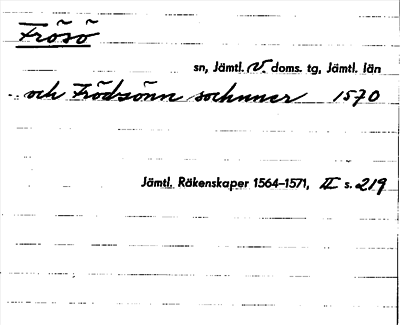 Frösö
sn, Jämtl. V. doms. tg, Jämtl. län
.. och Frödsönn sochnner 1570
Jämtl. Räkenskaper 1564–1571, II s. 219